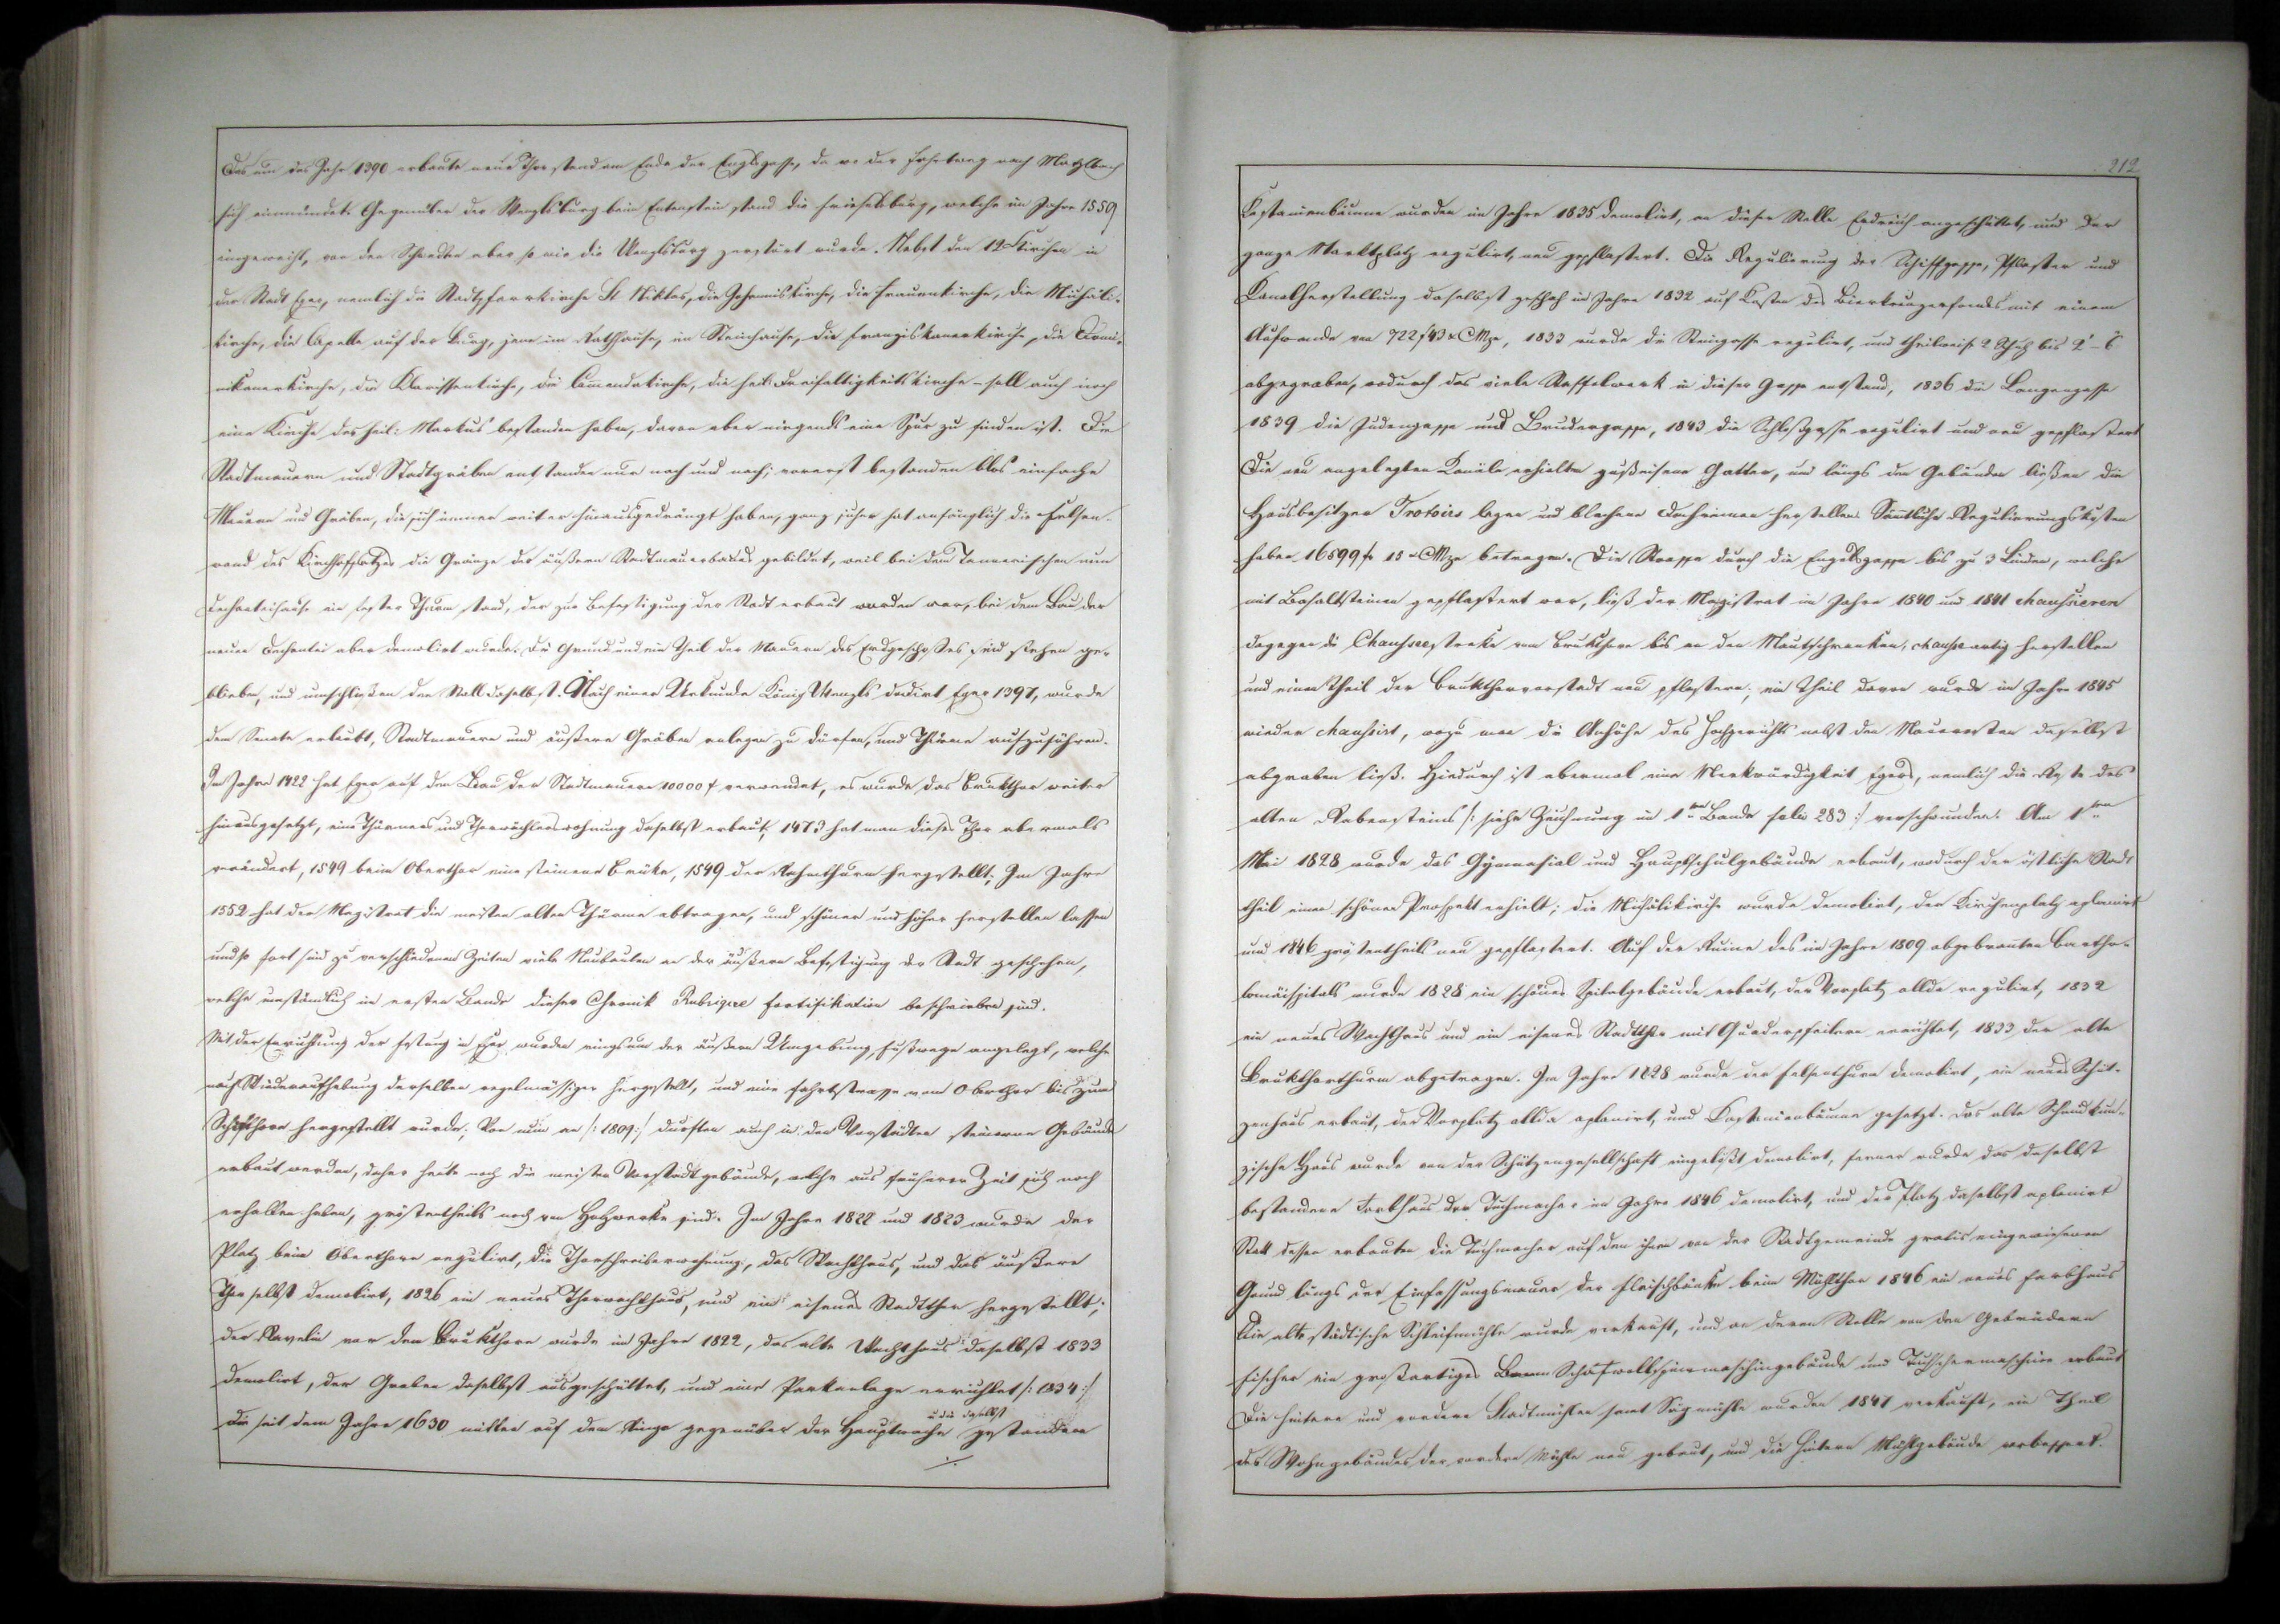 Das um das Jahr 1390 erbaute neue Thor stand am Ende der Englsgasse, da wo der Fahrtweg nach Matzlbach
sich einmündet. Gegenüber der Wenzlsburg beim stand die , welche im Jahre 1559
eingeweiht, von den Schweden aber so wie die Wenzlsburg zerstört wurde. Nebst den 12 Kirchen in
der Stadt Eger, nemlich die Stadtpfarrkirche St Niklas, die Kirche, die Frauenkirche, die Michäli-
kirche, die Capelle auf der Burg, jene im Rathhause, im Steinhause, die Franziskanerkirche, die Domi-
nikanerkirche, die Klarissenkirche, die Comendakirche, die heil: Dreifaltigkeitskirche – soll auch noch
eine Kirche des heil: Markus bestanden haben, davon aber nirgends eine Spur zu finden ist. Die
Stadtmauern und Stadtgräben entstanden nur nach und nach; vorerst bestanden blos einfache
Mauern und Gräben, die sich immer weiter hinausgedrängt haben, ganz sicher hat anfänglich die Felsen-
wand des Kirchhofplatzes die Gränze des äußern Stadtmauerbaues gebildet, weil bei dem nun
Dechanteihause ein fester Thurm stand, der zur Befestigung der Stadt erbaut worden war, bei dem Bau der
neuen Dechantei aber demolirt wurde. Die Grund und ein Theil der Mauern des Erdgeschoßes sind stehen ge-
blieben, und umschließen den Stall daselbst. Nach einer Urkunde König Wenzls dadirt Eger 1397, wurde
dem Senate erlaubt, Stadtmauern und äußere Gräben anlegen zu dürfen, und Thürme aufzuführen.
Im Jahre 1422 hat Eger auf den Bau der Stadtmauern 10000 f verwendet, es wurde das Brukthor weiter
hinausgesetzt, eine Thürmers und Thorwächterswohnung daselbst erbaut, 1473 hat man dieses Thor abermals
verändert, 1549 beim Oberthor eine steinerne Brüke, 1549 der thurm hergestellt; Im Jahre
1552 hat der Magistrat die meisten alten Thürme abtragen, und schöner und höher herstellen lassen
und so fort sind zu verschiedenen Zeiten viele Neubauten an der äußern Befestigung der Stadt geschehen,
welche umständlich im ersten Bande dieser Chronik Rubrique Fortifikation beschrieben sind.
Mit der Errichtung der Festung in Eger wurden ringsum der äußern Umgebung, Fußwege angelegt, welche
nach Wiederaufhebung derselben regelmässiger hergestellt, und eine Fahrtstrasse vom Oberthor bis zum
Schifthore hergestellt wurde; Von nun an /: 1809:/ durften auch in den Vorstädten steinerne Gebäude
erbaut werden, daher heute noch die meisten Vorstadtgebäude, welche aus früherer Zeit sich noch
erhalten haben, größtentheils noch von Holzwerke sind. Im Jahre 1822 und 1823 wurde der
Platz beim Oberthore regulirt, die Thorschreiberwohnung, das Wachthaus, und das äußere
Thor selbst demolirt, 1826 ein neues Thorwachthaus, und ein eisernes Stadtthor hergestellt;
der Ravelin vor dem Brukthore wurde im Jahre 1822, das alte Wachthaus daselbst 1833
demolirt, der Graben daselbst ausgeschüttet, und eine Parkanlage errichtet /: 1834:/
u die daselbst
Die seit dem Jahre 1630 mitten auf dem Ringe gegenüber der Hauptwache gestandene
./.
212
Kastanienbäume wurden im Jahre 1835 demolirt, an dieser Stelle Erdreich angeschüttet, und der
ganze Marktplatz regulirt, neu gepflastert. Die Regulierung der Schiffgasse, Pflaster und
Kanalherstellung daselbst geschah im Jahre 1832 auf Kosten des mit einem
Aufwande von 722 f 43 x CMze, 1833 wurde die Steingasse regulirt, und theilweise 2 Schuh bis 2'–6
abgegraben, wodurch das viele Staffelwerk in dieser Gasse entstand, 1836 die Langegasse
1839 die Judengasse und Brudergasse, 1843 die Schloßgasse regulirt und neu gepflastert
Die neu angelegten Kanäle erhielten gußeiserne Gatter, und längs den Gebäuden ließen die
Hausbesitzer Trotoirs legen und blecherne Dachrinnen herstellen. Sämtliche Regulierungskosten
haben 16599 f 15 x CMze betragen. Die Strasse durch die Englsgasse bis zu 3 Linden, welche
mit Basaltsteinen gepflastert war, ließ der Magistrat im Jahre 1840 und 1841 chaussieren
dagegen die Chausseestreke vom Brukthore bis an den Mautschranken, chausseeartig herstellen
und einen Theil der Brukthorvorstadt neu pflastern; ein Theil davon wurde im Jahre 1845
wieder chaussirt, wozu man die Anhöhe des Hochgerichts nebst den Mauerresten daselbst
abgraben ließ. Hiedurch ist abermal eine Merkwürdigkeit Egers, nemlich die Reste des
alten Rabensteins /: siehe Zeichnung im 1ten Bande folio 283:/ verschwunden. Am 1ten
Mai 1828 wurde das Gymnasial und Hauptschulgebäude erbaut, wodurch der östliche Stadt
theil einen schönen Prospekt erhielt; die Michälikirche wurde demolirt, der Kirchenplatz aplanirt
und 1846 größtentheils neu gepflastert. Auf der Ruine des im Jahre 1809 abgebranten Bartho-
lomäispitals wurde 1828 ein schönes Spitalgebäude erbaut, der Vorplatz allda regulirt, 1832
ein neues Wachthaus und ein eisernes Stadtthor mit Quaderpfeilern errichtet, 1833 der alte
Brukthorthurm abgetragen. Im Jahre 1828 wurde der Felsenthurm demolirt, ein neues Schüt-
zenhaus erbaut, der Vorplatz allda aplanirt, und Kastanienbäume gesetzt. Das alte
zische Haus wurde von der Schützengesellschaft eingelößt demolirt, ferner wurde das daselbst
bestandene Farbhaus der Tuchmacher im Jahre 1846 demolirt, und der Platz daselbst aplanirt
Statt dessen erbauten die Tuchmacher auf den ihnen von der Stadtgemeinde gratis eingewiesenen
Grund längs der Einfassungsmauer der Fleischbänke beim Mühlthor 1846 ein neues Farbhaus
Die alte städtische Schleifmühle wurde verkauft, und an deren Stelle von den Gebrüdern
Fischer ein großartiges Schafwollspinnmaschingebäude und Tuchschermaschine erbaut
Die hintere und vordere Stadtmühlen samt Sägmühle wurden 1847 verkauft, ein Theil
des Wohngebäudes der vordern Mühle neu gebaut, und die hintern Mühlgebäude verbessert.